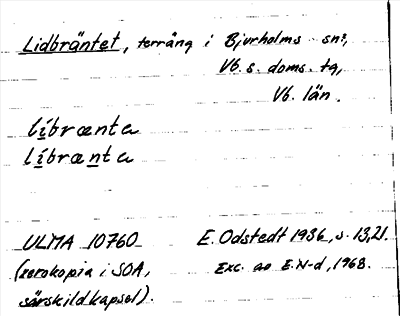 Lidbräntet, terräng i Bjurholms sn,
Vb. s. doms. tg,
Vb. län.
librænta
librænta
ULMA 10760 E. Odstedt 1936, s. 13, 21.
(xerokopia i SOA, Exc. av E.N-d, 1968.
särskild kapsel).